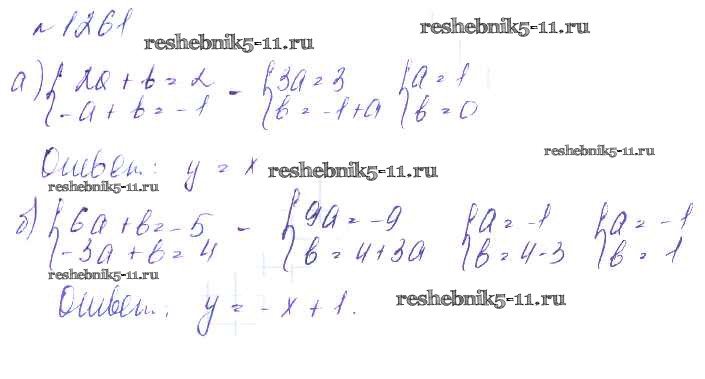 №1261
reshebnik5-11.ru
reshebnik5-11.ru
а) { 2a + b = 2 - { 3a = 3 { a = 1
{ -a + b = -1 { b = -1 + a { b = 0
reshebnik5-11.ru
Ответ: y = x reshebnik5-11.ru
reshebnik5-11.ru
б) { 6a + b = -5 - { 9a = -9 { a = -1 { a = -1
{ -3a + b = 4 { b = 4 + 3a { b = 4 - 3 { b = 1
reshebnik5-11.ru
Ответ: y = -x + 1. reshebnik5-11.ru